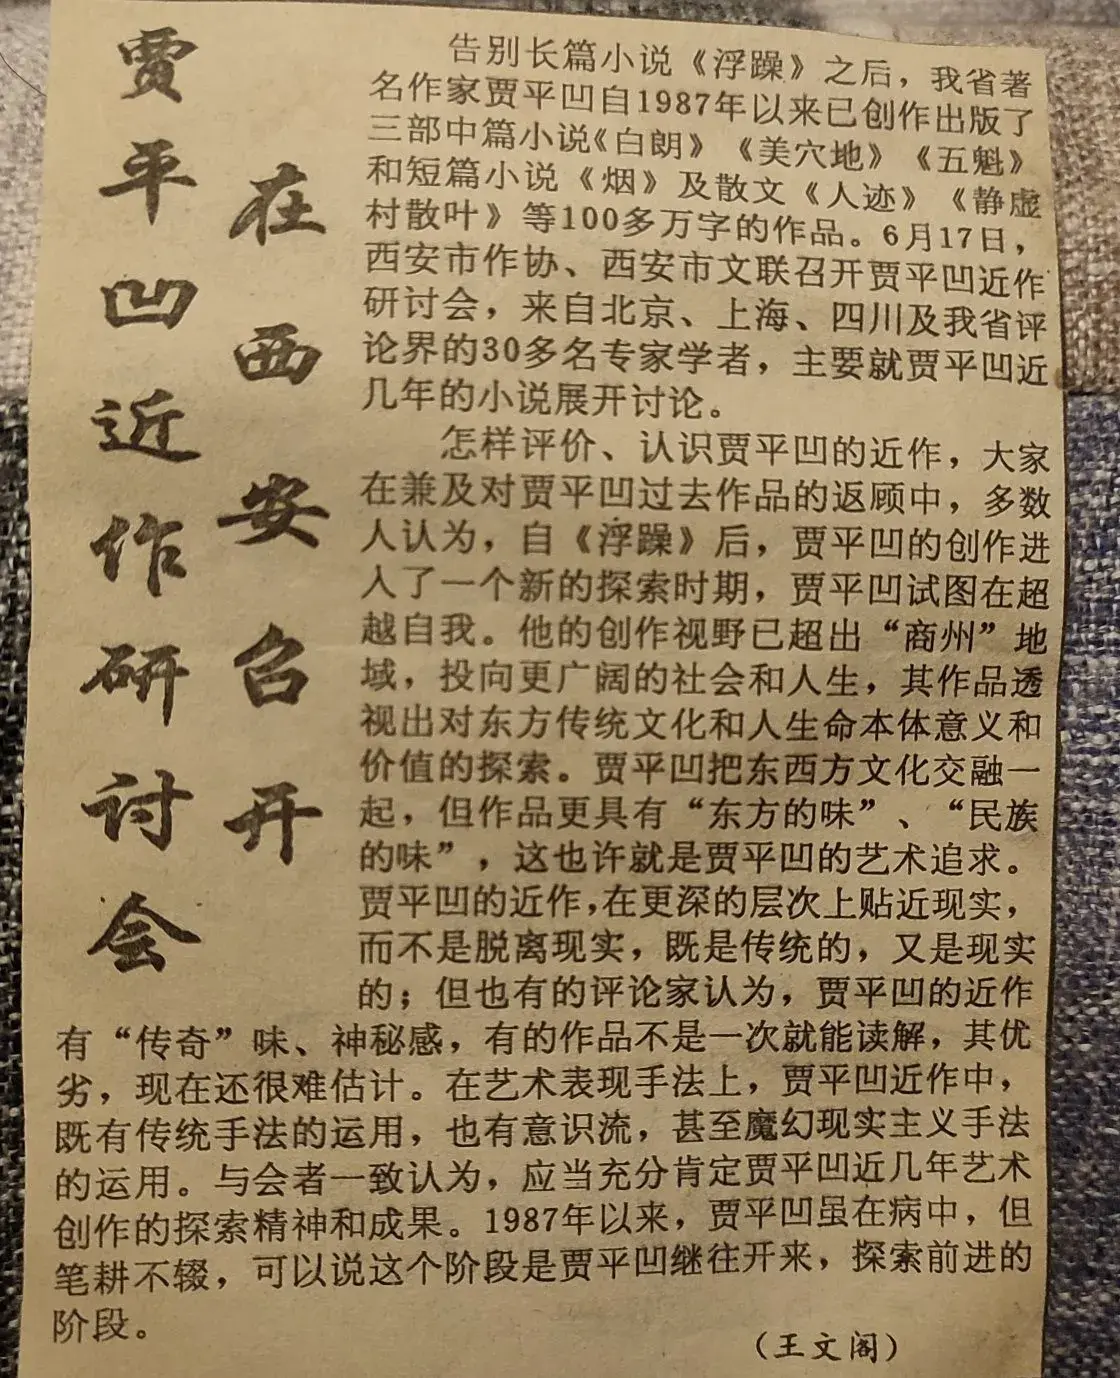 贾平凹近作研讨会
在西安召开
告别长篇小说《浮躁》之后，我省著
名作家贾平凹自1987年以来已创作出版了
三部中篇小说《白朗》《美穴地》《五魁》
和短篇小说《烟》及散文《人迹》《静虚
村散叶》等100多万字的作品。6月17日，
西安市作协、西安市文联召开贾平凹近作
研讨会，来自北京、上海、四川及我省评
论界的30多名专家学者，主要就贾平凹近
几年的小说展开讨论。
怎样评价、认识贾平凹的近作，大家
在兼及对贾平凹过去作品的返顾中，多数
人认为，自《浮躁》后，贾平凹的创作进
入了一个新的探索时期，贾平凹试图在超
越自我。他的创作视野已超出“商州”地
域，投向更广阔的社会和人生，其作品透
视出对东方传统文化和人生命本体意义和
价值的探索。贾平凹把东西方文化交融一
起，但作品更具有“东方的味”、“民族
的味”，这也许就是贾平凹的艺术追求。
贾平凹的近作，在更深的层次上贴近现实，
而不是脱离现实，既是传统的，又是现实
的；但也有的评论家认为，贾平凹的近作
有“传奇”味、神秘感，有的作品不是一次就能读解，其优
劣，现在还很难估计。在艺术表现手法上，贾平凹近作中，
既有传统手法的运用，也有意识流，甚至魔幻现实主义手法
的运用。与会者一致认为，应当充分肯定贾平凹近几年艺术
创作的探索精神和成果。1987年以来，贾平凹虽在病中，但
笔耕不辍，可以说这个阶段是贾平凹继往开来，探索前进的
阶段。
（王文阁）